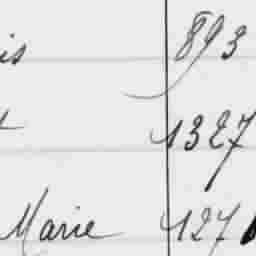 is 893
t 1327
Marie 127